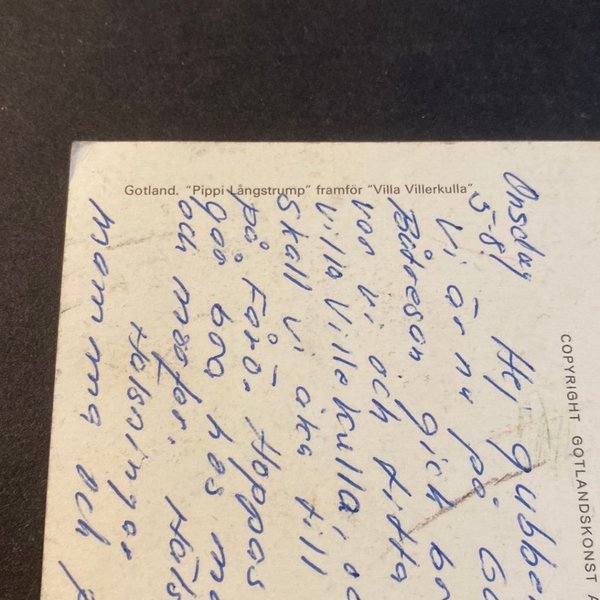 Gotland. "Pippi Långstrump" framför "Villa Villerkulla".
Onsdag
5-8
Hej gubben
Vi är nu på
Båtresan gick
var vi och titta
Villa Villekulla,
Skall vi åka till
på Fårö. Hoppas
går bra hos
och morfar.
Hälsningar
mamma och
COPYRIGHT GOTLANDSKONST